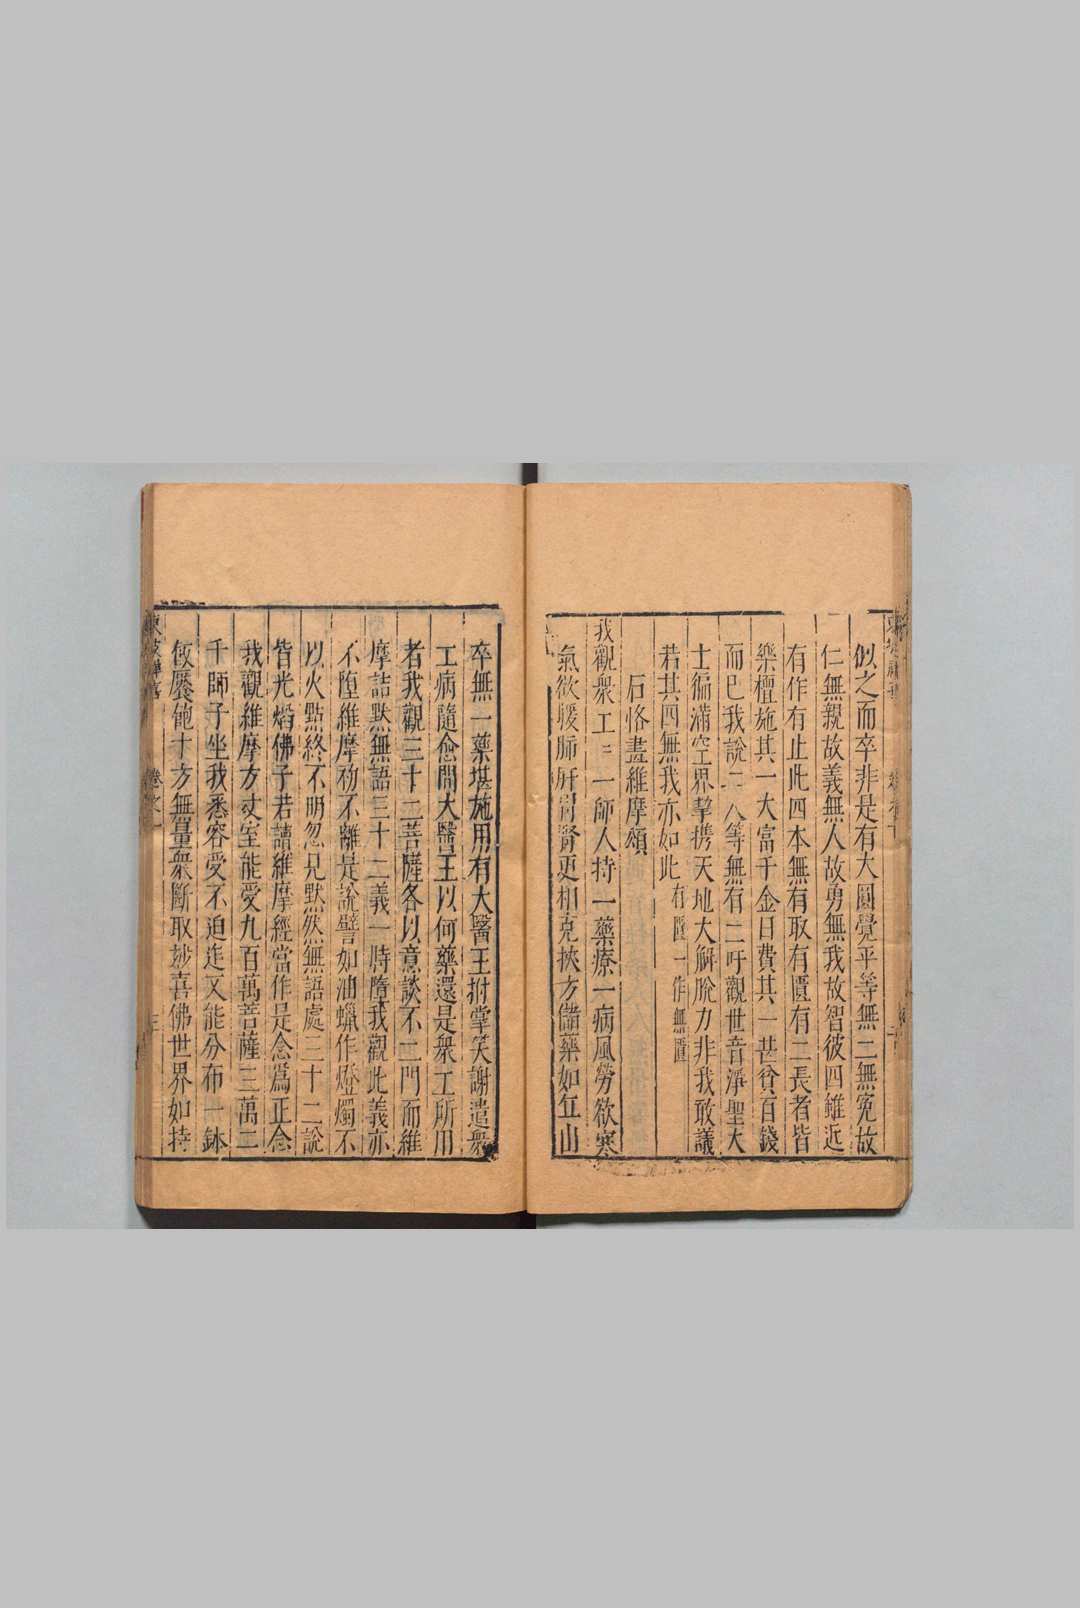 似之而卒非是有大圓覺平等無二無冤故
仁無親故義無人故勇無我故智彼四雖近
有作有止此四本無有取有匱有二長者皆
樂檀施其一大富千金日費其一甚貧百錢
而已我說二人等無有二吁觀世音淨聖大
士徧滿空界挈攜天地大解脫力非我敢議
若其四無我亦如此 有匱一作無匱
石恪畫維摩頌
我觀衆工工一師人持一藥療一病風勞欲寒
氣欲暖肺肝胃腎更相克挾方儲藥如丘山
卒無一藥堪施用有大醫王拊掌笑謝遣衆
工病隨愈問大醫王以何藥還是衆工所用
者我觀三十二菩薩各以意談不二門而維
摩詰默無語三十二義一時隋我觀此義亦
不墮維摩初不離是說譬如油蠟作燈燭不
以火點終不明忽見默然無語處三十二說
皆光熖佛子若讀維摩經當作是念爲正念
我觀維摩方丈室能受九百萬菩薩三萬二
千師子坐我悉容受不迫迮又能分布一鉢
飯饜飽十方無量衆斷取妙喜佛世界如持
東坡禪喜 卷之一 三